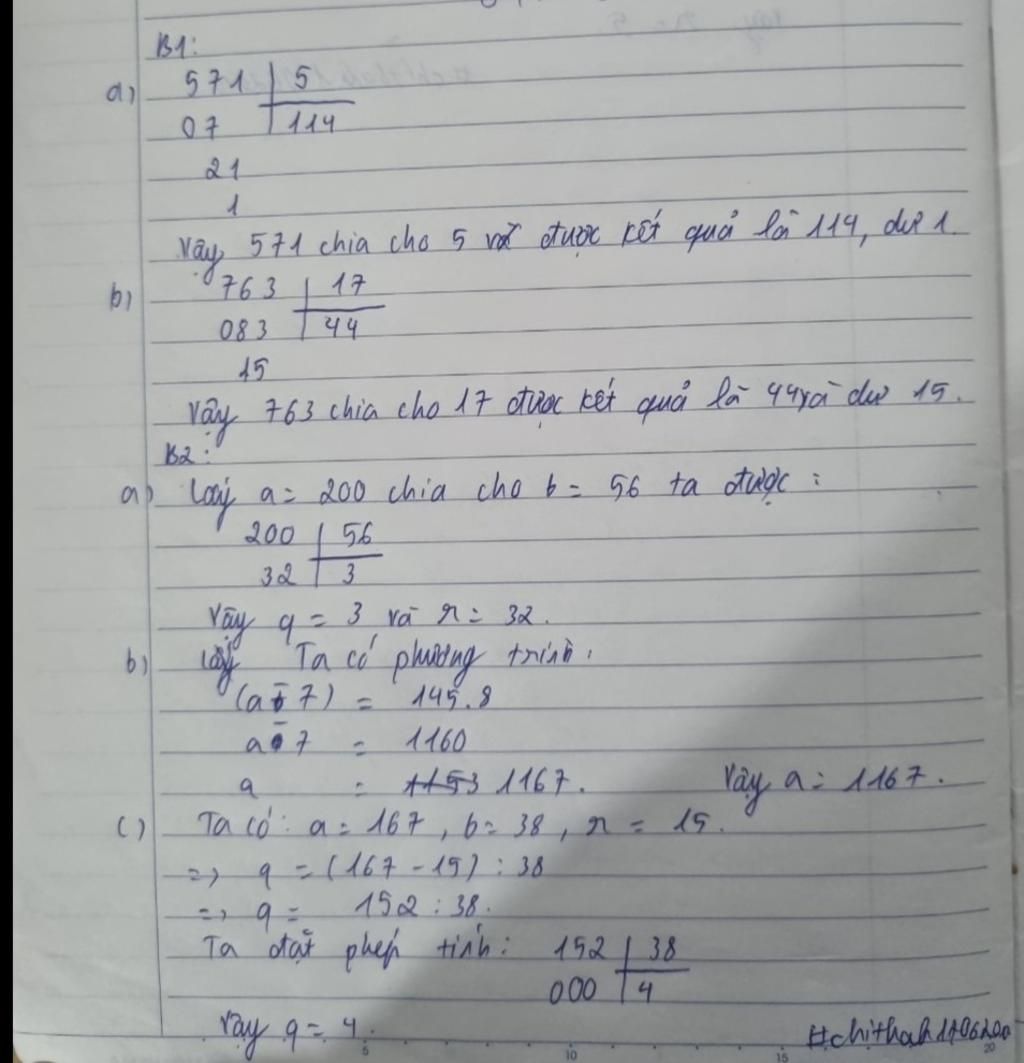 B1:
a) 571 | 5
07 | 114
21
1
Vậy 571 chia cho 5 được kết quả là 114, dư 1.
b) 763 | 17
083 | 44
15
Vậy 763 chia cho 17 được kết quả là 44 và dư 15.
B2:
a) Lấy a = 200 chia cho b = 56 ta được :
200 | 56
32 | 3
Vậy q = 3 và r = 32.
b) Lấy Ta có phương trình:
(a - 7) = 145.8
a - 7 = 1160
a = 1153 1167. Vậy a = 1167.
c) Ta có: a = 167, b = 38, r = 15.
=> q = (167 - 15) : 38
=> q = 152 : 38.
Ta đặt phép tính: 152 | 38
000 | 4
Vậy q = 4.